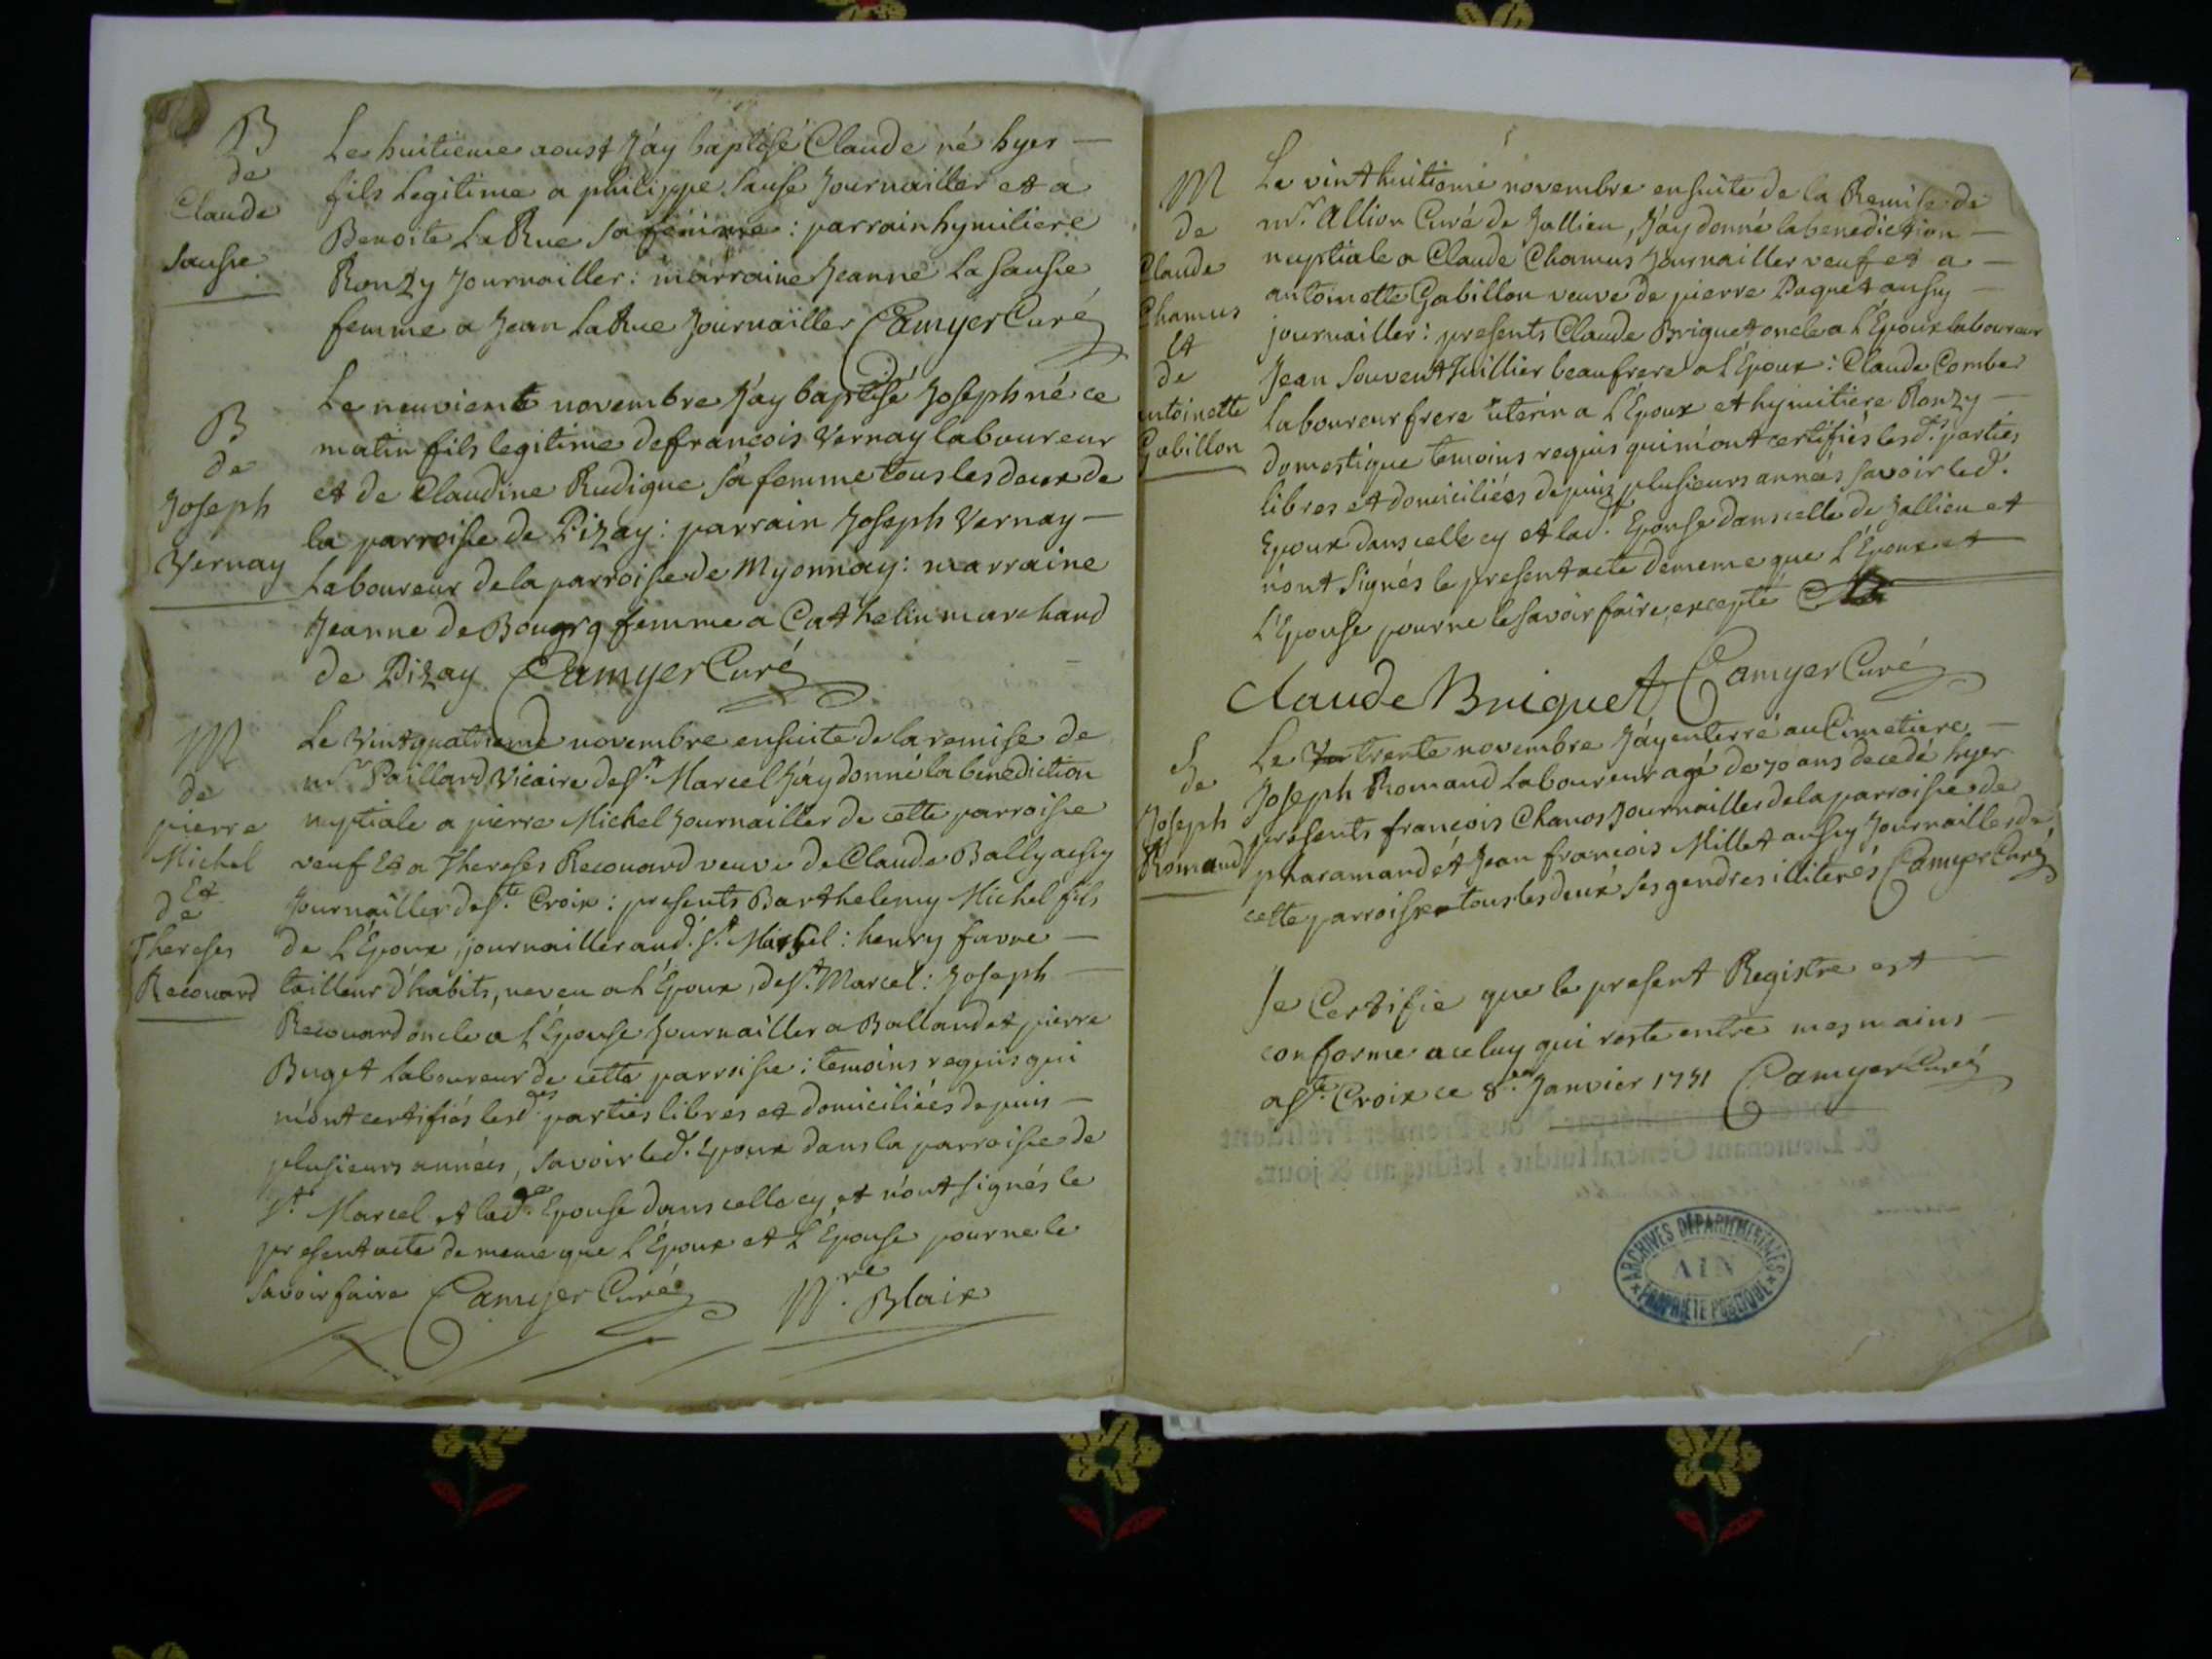 B
de
Claude
Sausse
Le huitieme aoust J'ay baptisé Claude né hyer
fils Legitime a philippe Sausse Journailler et a
Benoite LaRue sa femme : parrain hymitiere
Ronzy Journailler : marraine Jeanne La Sausse
femme a Jean LaRue Journailler Camyer Curé
B
de
Joseph
Vernay
Le neuvieme novembre J'ay baptisé Joseph né ce
matin fils legitime de francois Vernay laboureur
et de Claudine Rudigue sa femme tous les deux de
la parroisse de Pizay : parrain Joseph Vernay
Laboureur de la parroisse de Myonnay : marraine
Jeanne de Bourg femme a Cathelin marchand
de Pizay Camyer Curé
M
de
pierre
Michel
Et
de
Thereses
Recouard
Le Vintquatrieme novembre ensuite de la remise de
mr. Paillard Vicaire de St. Marcel J'ay donné la benediction
nuptiale a pierre Michel Journailler de cette parroisse
veuf Et a Thereses Recouard veuve de Claude Bally aussy
Journailler de Ste. Croix : presents Barthelemy Michel fils
de L'Epoux, journailler aud. St. Marcel : henry favre
tailleur d'habits, neveu a L'Epoux, de St. Marcel : Joseph
Recouard oncle a L'Epouse Journailler a Balland et pierre
Buget Laboureur de cette parroisse : temoins requis qui
m'ont certifiés lesd.es parties libres et domiciliées depuis
plusieurs années, savoir led. Epoux dans la parroisse de
St. Marcel et lad. Epouse dans celle cy et n'ont signés le
present acte de meme que L'Epoux et L'Epouse pour ne le
savoir faire Camyer Curé
Blaix
M
de
Claude
Chamus
Et
de
antoinette
Gabillon
Le vinthuitieme novembre ensuite de la Remise de
mr. Allion Curé de Jallieu, J'ay donné la benediction
nuptiale a Claude Chamus Journailler veuf et a
antoinette Gabillon veuve de pierre Paquet aussy
journailler : presents Claude Briquet oncle a L'Epoux laboureur
Jean Souvent Juillier beaufrere a L'Epoux : Claude Comber
Laboureur frere uterin a L'Epoux et hymitiere Ronzy
domestique temoins requis qui m'ont certifiés lesd.es parties
libres et domiciliées depuis plusieurs années savoir led.
Epoux dans celle cy et lad. Epouse dans celle de Jallieu et
n'ont signés le present acte de meme que L'Epoux et
L'Epouse pour ne le savoir faire, excepté
Claude Briquet Camyer Curé
S
de
Joseph
Romand
Le trente novembre J'ay enterré au Cimetiere
Joseph Romand Laboureur agé de 70 ans decedé hyer
presents francois Chanos Journailler de la parroisse de
pharamand et Jean francois Millet aussy Journailler de
cette parroisse tous les deux ses gendres illiterés Camyer Curé
Je Certifie que le present Registre est
conforme a celuy qui reste entre mes mains
a Ste. Croix ce 8.e Janvier 1751 Camyer Curé
ARCHIVES DÉPARTEMENTALES
AIN
PROPRIÉTÉ PUBLIQUE